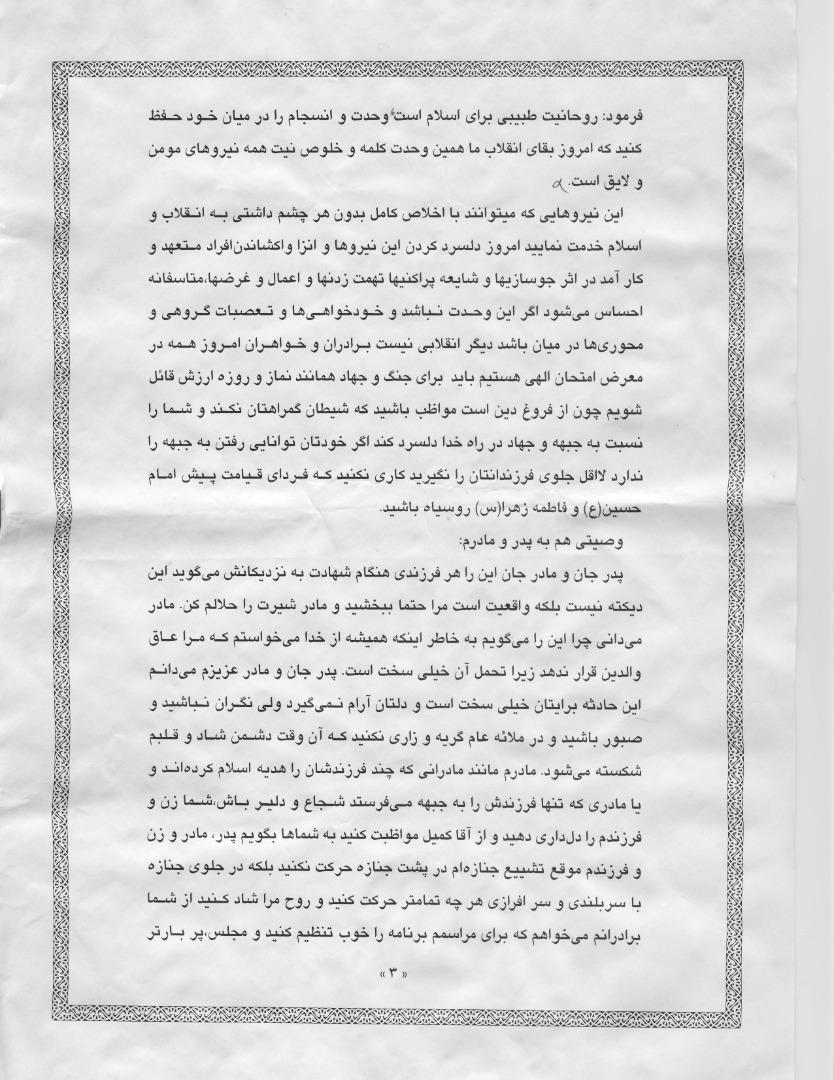 فرمود: روحانیت طبیبی برای اسلام است وحدت و انسجام را در میان خود حفظ
کنید که امروز بقای انقلاب ما همین وحدت کلمه و خلوص نیت همه نیروهای مومن
و لایق است.
این نیروهایی که میتوانند با اخلاص کامل بدون هر چشم داشتی به انقلاب و
اسلام خدمت نمایید امروز دلسرد کردن این نیروها و انزا واکشاندن‌افراد متعهد و
کار آمد در اثر جوسازیها و شایعه پراکنیها تهمت زدنها و اعمال و غرضها،متاسفانه
احساس می‌شود اگر این وحدت نباشد و خودخواهی‌ها و تعصبات گروهی و
محوری‌ها در میان باشد دیگر انقلابی نیست برادران و خواهران امروز همه در
معرض امتحان الهی هستیم باید برای جنگ و جهاد همانند نماز و روزه ارزش قائل
شویم چون از فروغ دین است مواظب باشید که شیطان گمراهتان نکند و شما را
نسبت به جبهه و جهاد در راه خدا دلسرد کند اگر خودتان توانایی رفتن به جبهه را
ندارد لااقل جلوی فرزندانتان را نگیرید کاری نکنید که فردای قیامت پیش امام
حسین(ع) و فاطمه زهرا(س) روسیاه باشید.
وصیتی هم به پدر و مادرم:
پدر جان و مادر جان این را هر فرزندی هنگام شهادت به نزدیکانش می‌گوید این
دیکته نیست بلکه واقعیت است مرا حتما ببخشید و مادر شیرت را حلالم کن. مادر
می‌دانی چرا این را می‌گویم به خاطر اینکه همیشه از خدا می‌خواستم که مرا عاق
والدین قرار ندهد زیرا تحمل آن خیلی سخت است. پدر جان و مادر عزیزم می‌دانم
این حادثه برایتان خیلی سخت است و دلتان آرام نمی‌گیرد ولی نگران نباشید و
صبور باشید و در ملائه عام گریه و زاری نکنید که آن وقت دشمن شاد و قلبم
شکسته می‌شود. مادرم مانند مادرانی که چند فرزندشان را هدیه اسلام کرده‌اند و
یا مادری که تنها فرزندش را به جبهه می‌فرستد شجاع و دلیر باش،شما زن و
فرزندم را دل‌داری دهید و از آقا کمیل مواظبت کنید به شماها بگویم پدر، مادر و زن
و فرزندم موقع تشییع جنازه‌ام در پشت جنازه حرکت نکنید بلکه در جلوی جنازه
با سربلندی و سر افرازی هر چه تمامتر حرکت کنید و روح مرا شاد کنید از شما
برادرانم می‌خواهم که برای مراسمم برنامه را خوب تنظیم کنید و مجلس،پر بارتر
« ۳ »